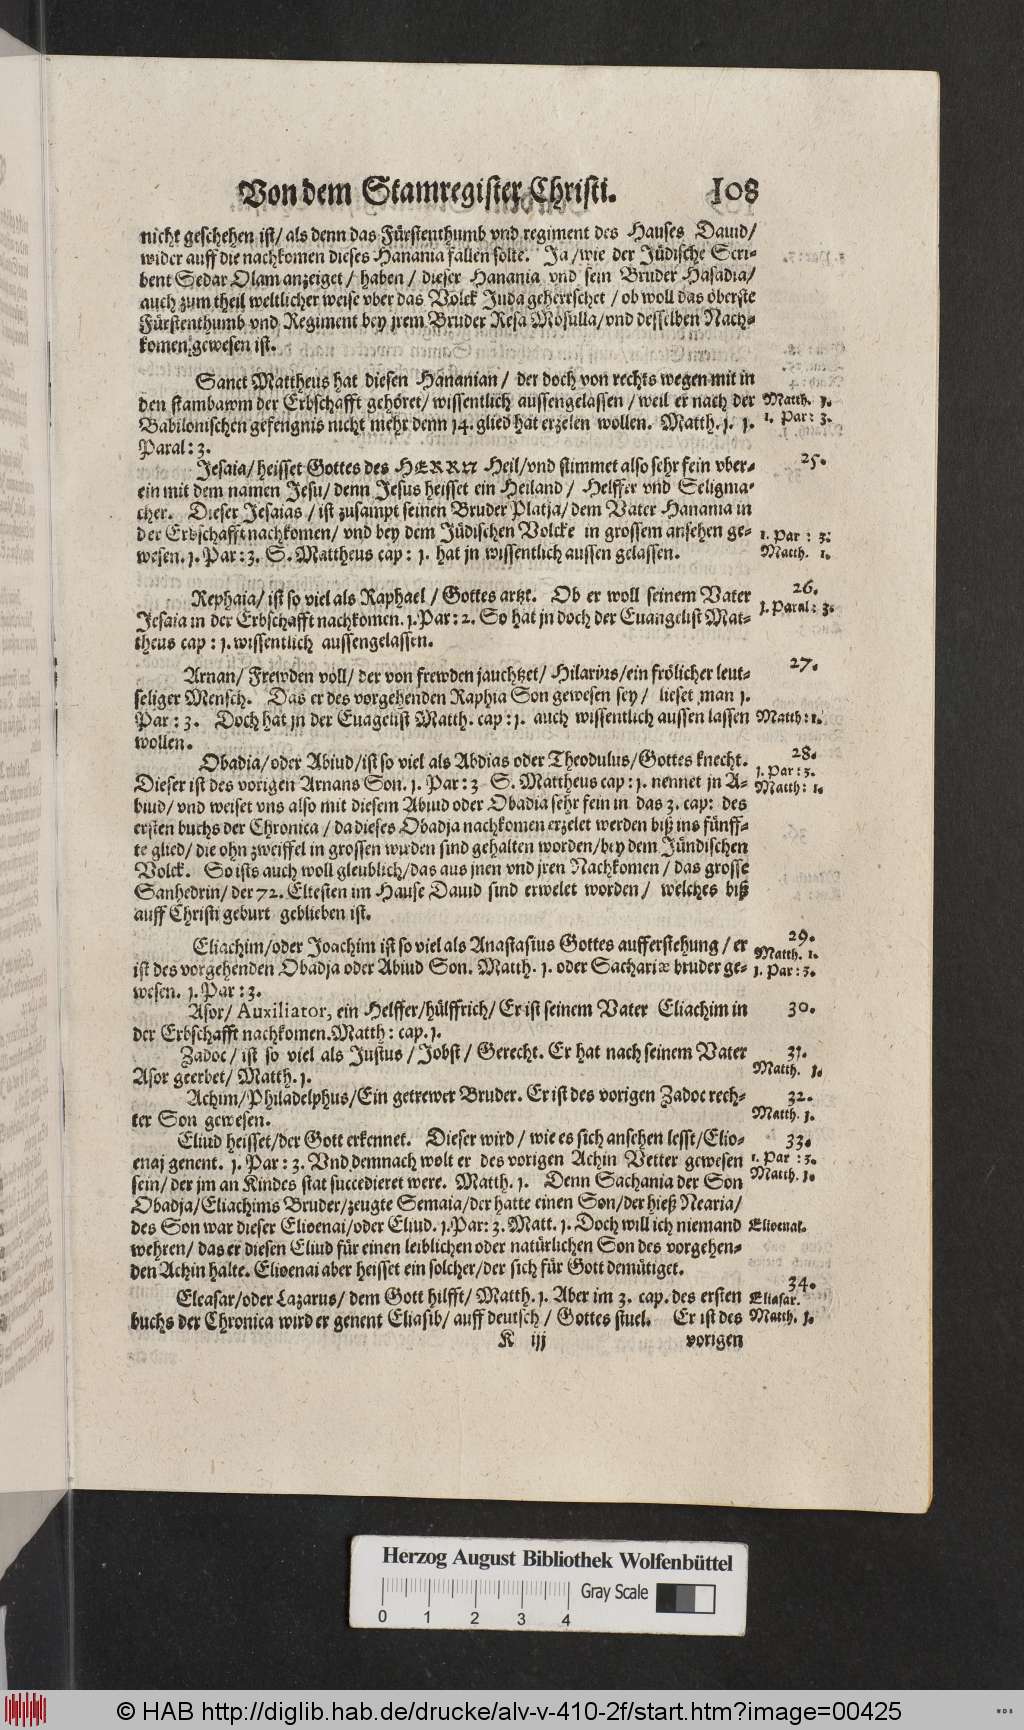 Von dem Stamregister Christi. 108
nicht geschehen ist/ als denn das Fürstenthumb vnd regiment des Hauses Dauid/
wider auff die nachkomen dieses Hanania fallen solte. Ja/wie der Jüdische Scri-
bent Sedar Olam anzeiget/ haben/ dieser Hanania vnd sein Bruder Hasadia/
auch zum theil weltlicher weise vber das Volck Juda geherrschet/ ob woll das öberste
Fürstenthumb vnd Regiment bey jrem Bruder Resa Mosulla/vnd desselben Nach-
komen gewesen ist.
Sanct Mattheus hat diesen Hananian/ der doch von rechts wegen mit in
den stambawm der Erbschafft gehöret/ wissentlich aussengelassen/ weil er nach der Matth. 1.
Babilonischen gefengnis nicht mehr denn 14. glied hat erzelen wollen. Matth. 1. 1. 1. Par: 3.
Paral: 3.
Jesaia/ heisset Gottes des HERRN Heil/vnd stimmet also sehr fein vber- 25.
ein mit dem namen Jesu/ denn Jesus heisset ein Heiland/ Helffer vnd Seligma-
cher. Dieser Jesaias/ ist zusampt seinen Bruder Platja/ dem Vater Hanania in
der Erbschafft nachkomen/ vnd bey dem Jüdischen Volcke in grossem ansehen ge- 1. Par: 3.
wesen. 1. Par: 3. S. Mattheus cap: 1. hat jn wissentlich aussen gelassen. Matth. 1.
Rephaia/ ist so viel als Raphael/ Gottes artzt. Ob er woll seinem Vater 26.
Jesaia in der Erbschafft nachkomen. 1. Par: 2. So hat jn doch der Euangelist Mat- 1. Paral: 3.
theus cap: 1. wissentlich aussengelassen.
Arnan/ Frewden voll/ der von frewden jauchtzet/ Hilarius/ein frölicher leut- 27.
seliger Mensch. Das er des vorgehenden Raphia Son gewesen sey/ lieset man 1.
Par: 3. Doch hat jn der Euagelist Matth. cap: 1. auch wissentlich aussen lassen Matth: 1.
wollen.
Obadia/ oder Abiud/ist so viel als Abdias oder Theodulus/Gottes knecht. 28.
Dieser ist des vorigen Arnans Son. 1. Par: 3 S. Mattheus cap: 1. nennet jn A- 1. Par: 3. Matth: 1.
biud/ vnd weiset vns also mit diesem Abiud oder Obadia sehr fein in das 3. cap: des
ersten buchs der Chronica/ da dieses Obadja nachkomen erzelet werden biß ins fünff-
te glied/ die ohn zweiffel in grossen wirden sind gehalten worden/bey dem Jündischen
Volck. So ists auch woll gleublich/das aus jnen vnd jren Nachkomen/ das grosse
Sanhedrin/ der 72. Eltesten im Hause Dauid sind erwelet worden/ welches biß
auff Christi geburt geblieben ist.
Eliachim/oder Joachim ist so viel als Anastasius Gottes aufferstehung/ er 29. Matth. 1.
ist des vorgehenden Obadja oder Abiud Son. Matth. 1. oder Sachariæ bruder ge- 1. Par: 3.
wesen. 1. Par: 3.
Asor/ Auxiliator, ein Helffer/hülffrich/ Er ist seinem Vater Eliachim in 30.
der Erbschafft nachkomen. Matth: cap. 1.
Zadoc/ ist so viel als Justus/ Jobst/ Gerecht. Er hat nach seinem Vater 31.
Asor geerbet/ Matth. 1. Matth. 1.
Achim/Philadelphus/Ein getrewer Bruder. Er ist des vorigen Zadoc rech- 32.
ter Son gewesen. Matth. 1.
Eliud heisset/der Gott erkennet. Dieser wird/ wie es sich ansehen lesst/Elio- 33.
enaj genent. 1. Par: 3. Vnd demnach wolt er des vorigen Achin Vetter gewesen 1. Par: 3.
sein/ der jm an Kindes stat succedieret were. Matth. 1. Denn Sachania der Son Matth. 1.
Obadja/Eliachims Bruder/zeugte Semaia/der hatte einen Son/der hieß Nearia/
des Son war dieser Elioenai/oder Eliud. 1.Par: 3. Matt. 1. Doch will ich niemand Elioenai.
wehren/ das er diesen Eliud für einen leiblichen oder natürlichen Son des vorgehen-
den Achin halte. Elioenai aber heisset ein solcher/der sich für Gott demütiget.
Eleasar/oder Lazarus/ dem Gott hilfft/ Matth. 1. Aber im 3. cap. des ersten 34. Eliasar.
buchs der Chronica wird er genent Eliasib/ auff deutsch/ Gottes stuel. Er ist des Matth. 1.
K iij vorigen
Herzog August Bibliothek Wolfenbüttel
Gray Scale
0 1 2 3 4
© HAB http://diglib.hab.de/drucke/alv-v-410-2f/start.htm?image=00425